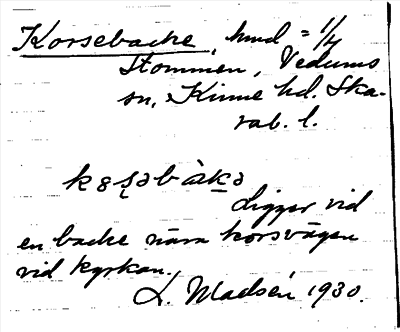 Korsebacke, hmd = 1/4
Stommen, Vedums
sn, Kinne hd. Ska-
rab. l.
kɞʂəbàkə
Ligger vid
en backe nära korsvägen
vid kyrkan.
L. Madsén 1930.